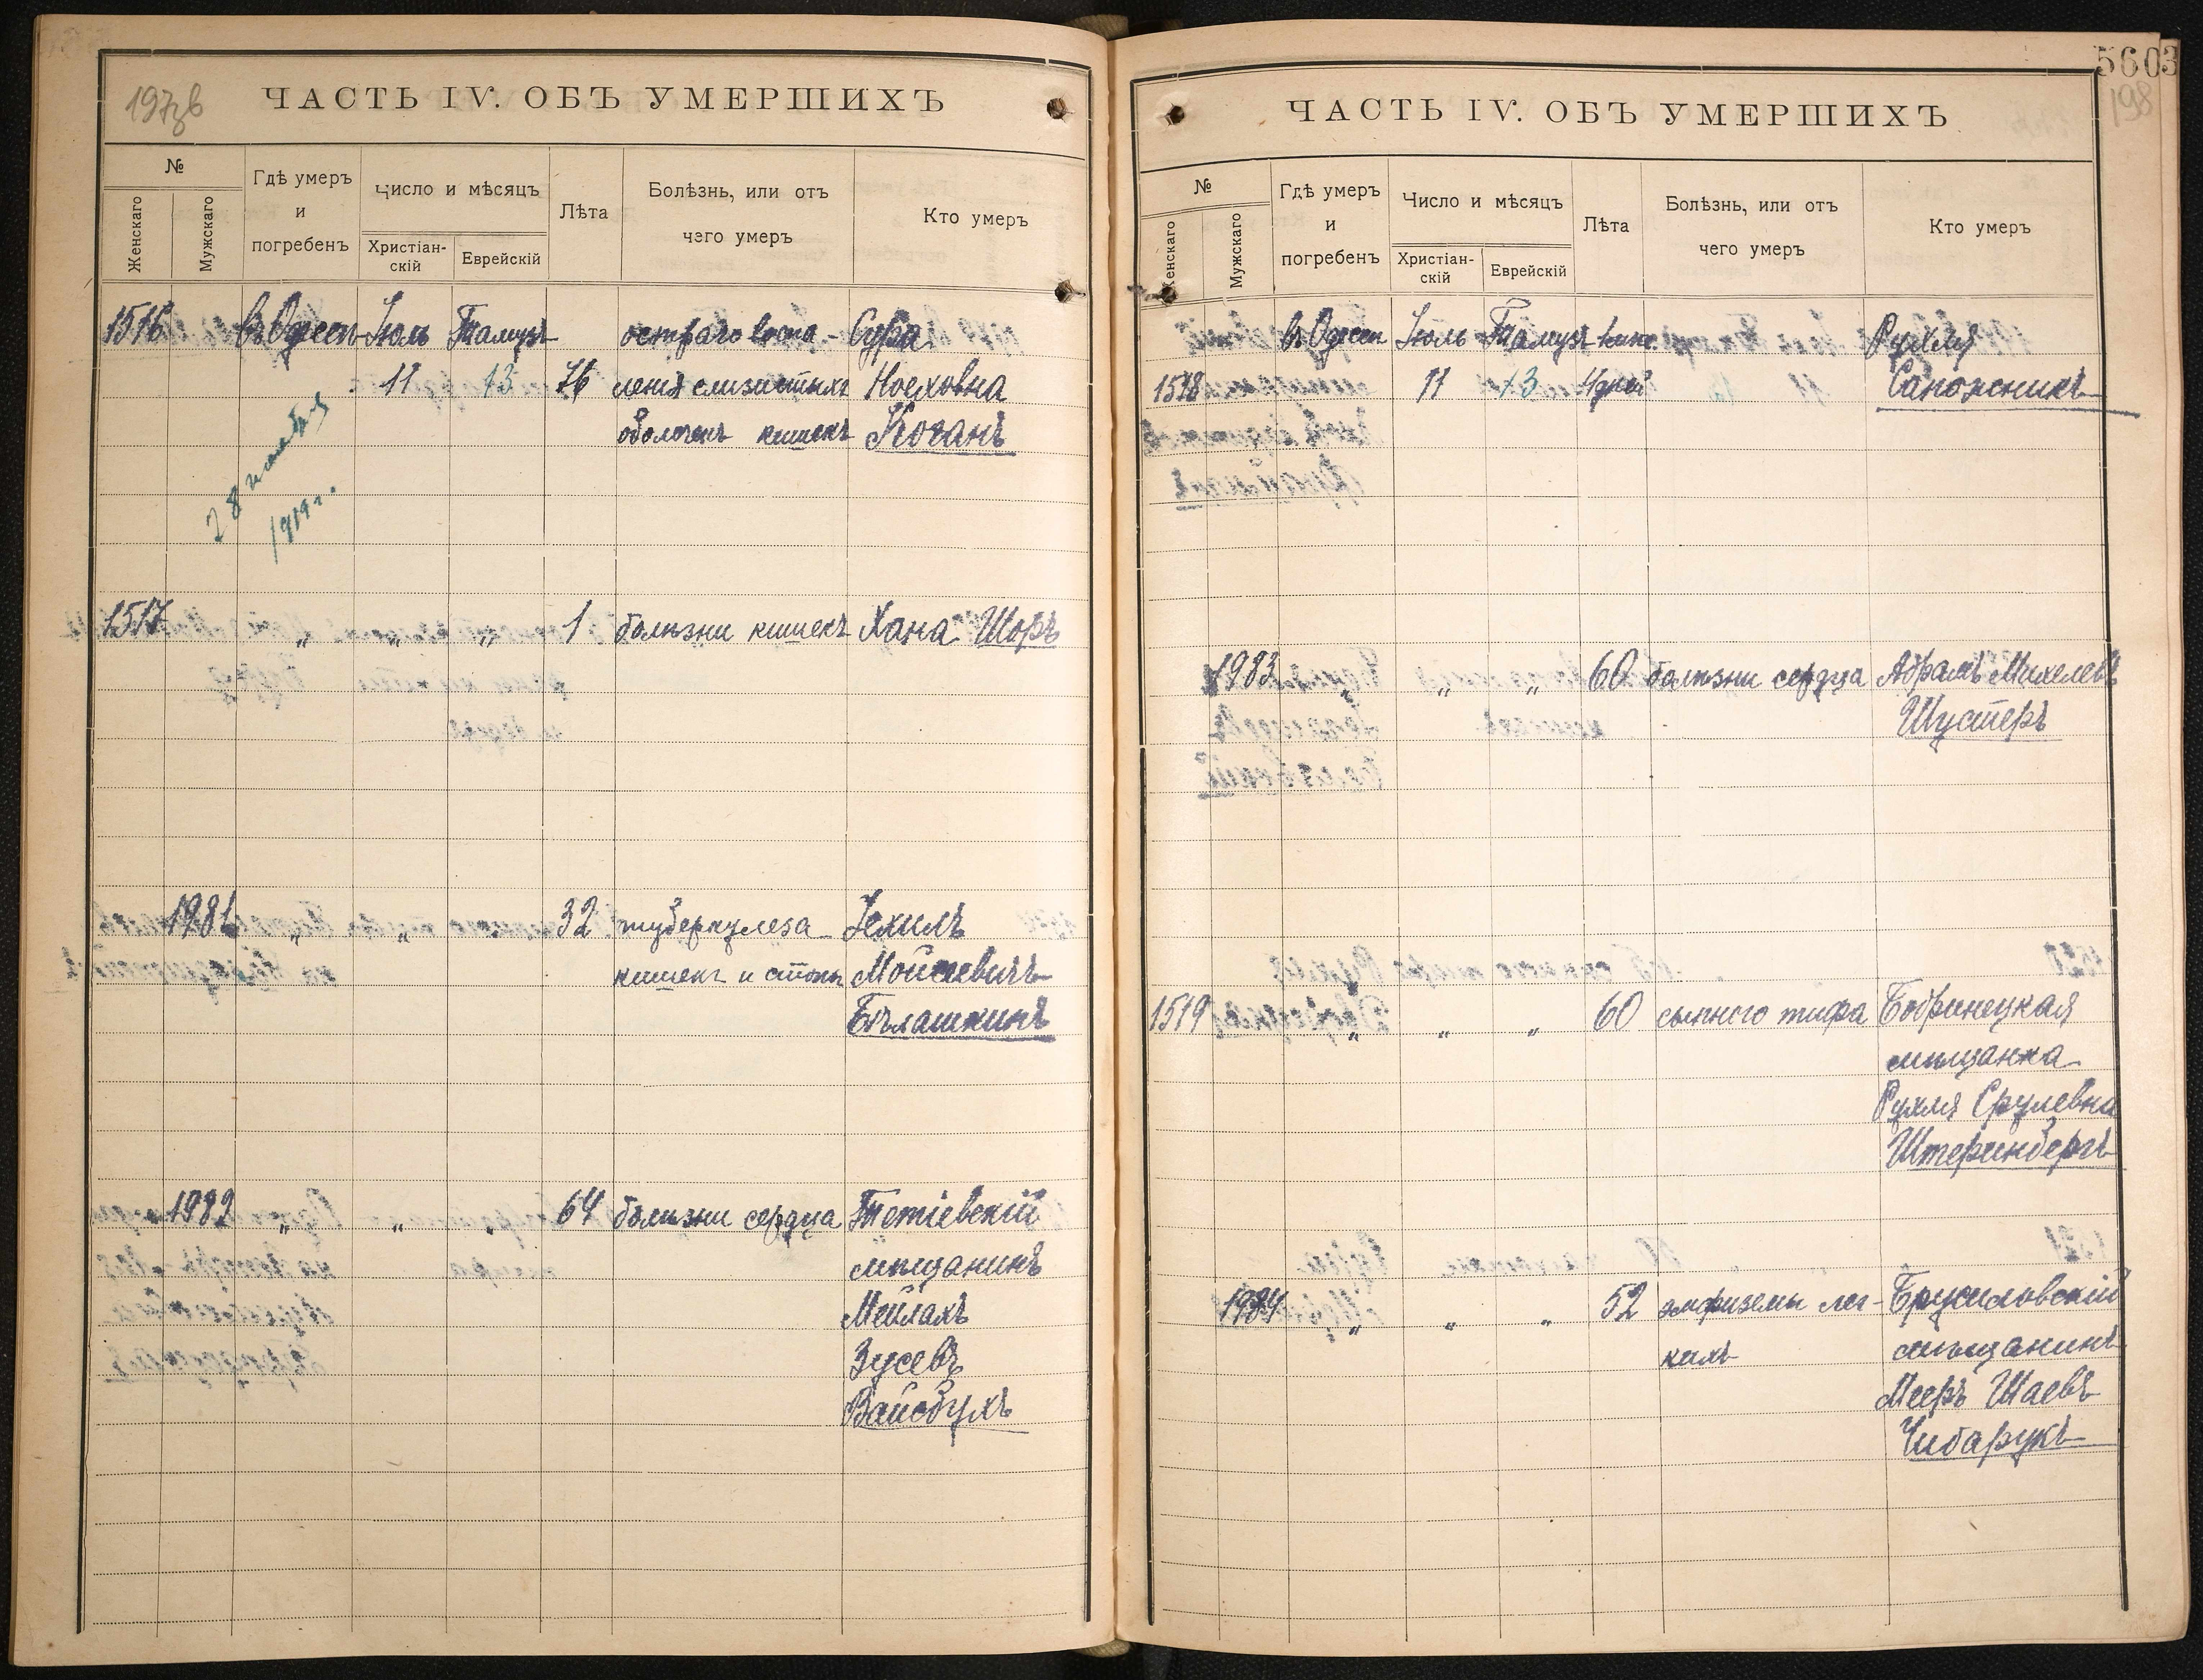 197зв
ЧАСТЬ IV. ОБЪ УМЕРШИХЪ
№
Женскаго
Мужскаго
Гдѣ умеръ и погребенъ
Число и мѣсяцъ
Христіан-скій
Еврейскій
Лѣта
Болѣзнь, или отъ чего умеръ
Кто умеръ
1516 въ Одессѣ Іюль Тамузъ остраго воспа- Сура
11 13 76 ленія слизистыхъ Ноеховна
оболочекъ кишекъ Коганъ
28
1919 г.
1517 „ „ „ 1 болѣзни кишекъ Хана Шоръ
1981 „ „ 32 туберкулеза Іехилъ
кишекъ и стопы Мойсеевичъ
Бѣлашкинъ
1982 „ „ „ 64 болѣзни сердца Тетіевскій
мѣщанинъ
Мейлахъ
Зусевъ
Вайсбухъ
5603
198
ЧАСТЬ IV. ОБЪ УМЕРШИХЪ
№
Женскаго
Мужскаго
Гдѣ умеръ и погребенъ
Число и мѣсяцъ
Христіан-скій
Еврейскій
Лѣта
Болѣзнь, или отъ чего умеръ
Кто умеръ
въ Одессѣ Іюль Тамузъ Рухля
1518 11 13 4 дней Сапожникъ
1983 „ „ „ 60 болѣзни сердца Абрамъ Михелевъ
Шустеръ
1519 „ „ „ 60 сыпного тифа Бобринецкая
мѣщанка
Рухля Срулевна
Штеренбергъ
1984 „ „ „ 52 эмфиземы лег- Брусиловскій
кихъ мѣщанинъ
Мееръ Шаевъ
Чибарукъ